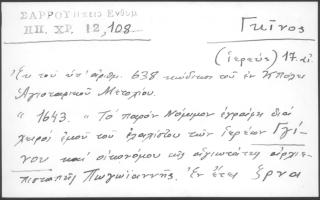 ΣΑΡΡΟΥ
ΠΠ. ΧΡ. 12,108
Γκῖνος
(ἱερεὺς) 17. αἰ.
Ἐκ τοῦ ὑπ' ἀριθμ. 638 κώδικος τοῦ ἐν Κ/πόλει
Ἁγιοταφικοῦ Μετοχίου.
"1643. "Τὸ παρὸν Νόμιμον ἐγράφη διὰ
χειρὸς ἐμοῦ τοῦ ἐλαχίστου τῶν ἱερέων Γγί-
νου καὶ οἰκονόμου τῆς ἁγιωτάτης ἀρχιε-
πισκοπῆς Πωγωϊαννῆς. Ἐν ἔτει ζρνα